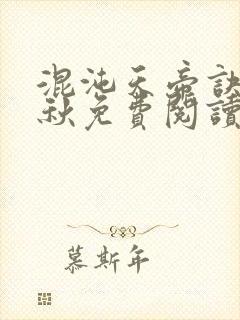 混沌天帝訣
秋免費閱讀
慕斯年